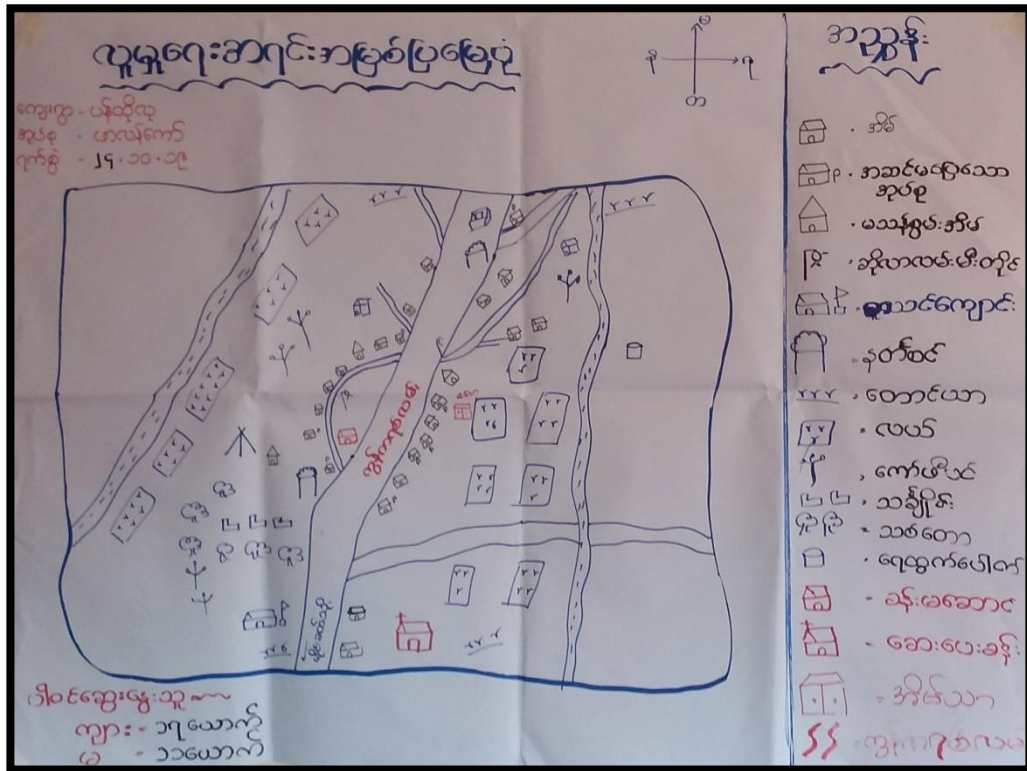 လူမှုရေးအရင်းအမြစ်ပြမြေပုံ
ကျေးရွာ - ပန်ထိုလု
အုပ်စု - ဟာလန်ကော်
ရက်စွဲ - ၂၄.၁၀.၁၉
မ
န
ရ
တ
အညွှန်း
- အိမ်
- အဆင်မပြေသော
အုပ်စု
- မသန်စွမ်းအိမ်
- ဆိုလာလမ်းမီးတိုင်
ကျောင်း
- နတ်စင်
- တောင်ယာ
- လယ်
- ကော်ဖီပင်
- သင်္ချိုင်း
= သစ်တော
- ရေထွက်ပေါက်
- ခန်းမဆောင်
- ဆေးပေးခန်း
= အိမ်သာ
ပါဝင်ဆွေးနွေးသူ
ကျား - ၁၇ယောက်
မ - ၁၁ယောက်